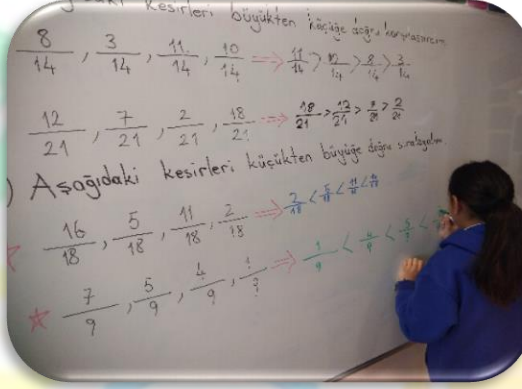 kesirleri büyükten küçüğe doğru
8/14, 3/14, 11/14, 10/14 => 11/14 > 10/14 > 8/14 > 3/14
12/21, 7/21, 2/21, 18/21 => 18/21 > 12/21 > 7/21 > 2/21
) Aşağıdaki kesirleri küçükten büyüğe doğru sıralayalım
16/18, 5/18, 11/18, 2/18 => 2/18 < 5/18 < 11/18 < 16/18
7/9, 5/9, 4/9, 1/9 => 1/9 < 4/9 < 5/9 <